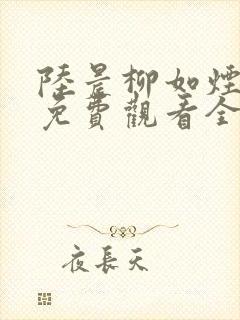 陸景柳如煙
免費觀看全
夜長天